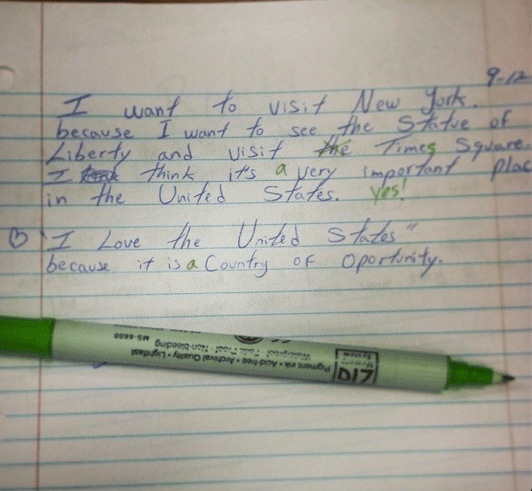 9-12
I want to visit New York.
because I want to see the Statue of
Liberty and visit the Times Square.
I think it's a very important plac
in the United States. yes!
"I Love the United States"
because it is a Country of Oportunity.
ZIG
Memory System
Pigment ink • Acid-free • Archival Quality • Lightfast
Waterproof • Fade Proof • Non-bleeding
MS-6600